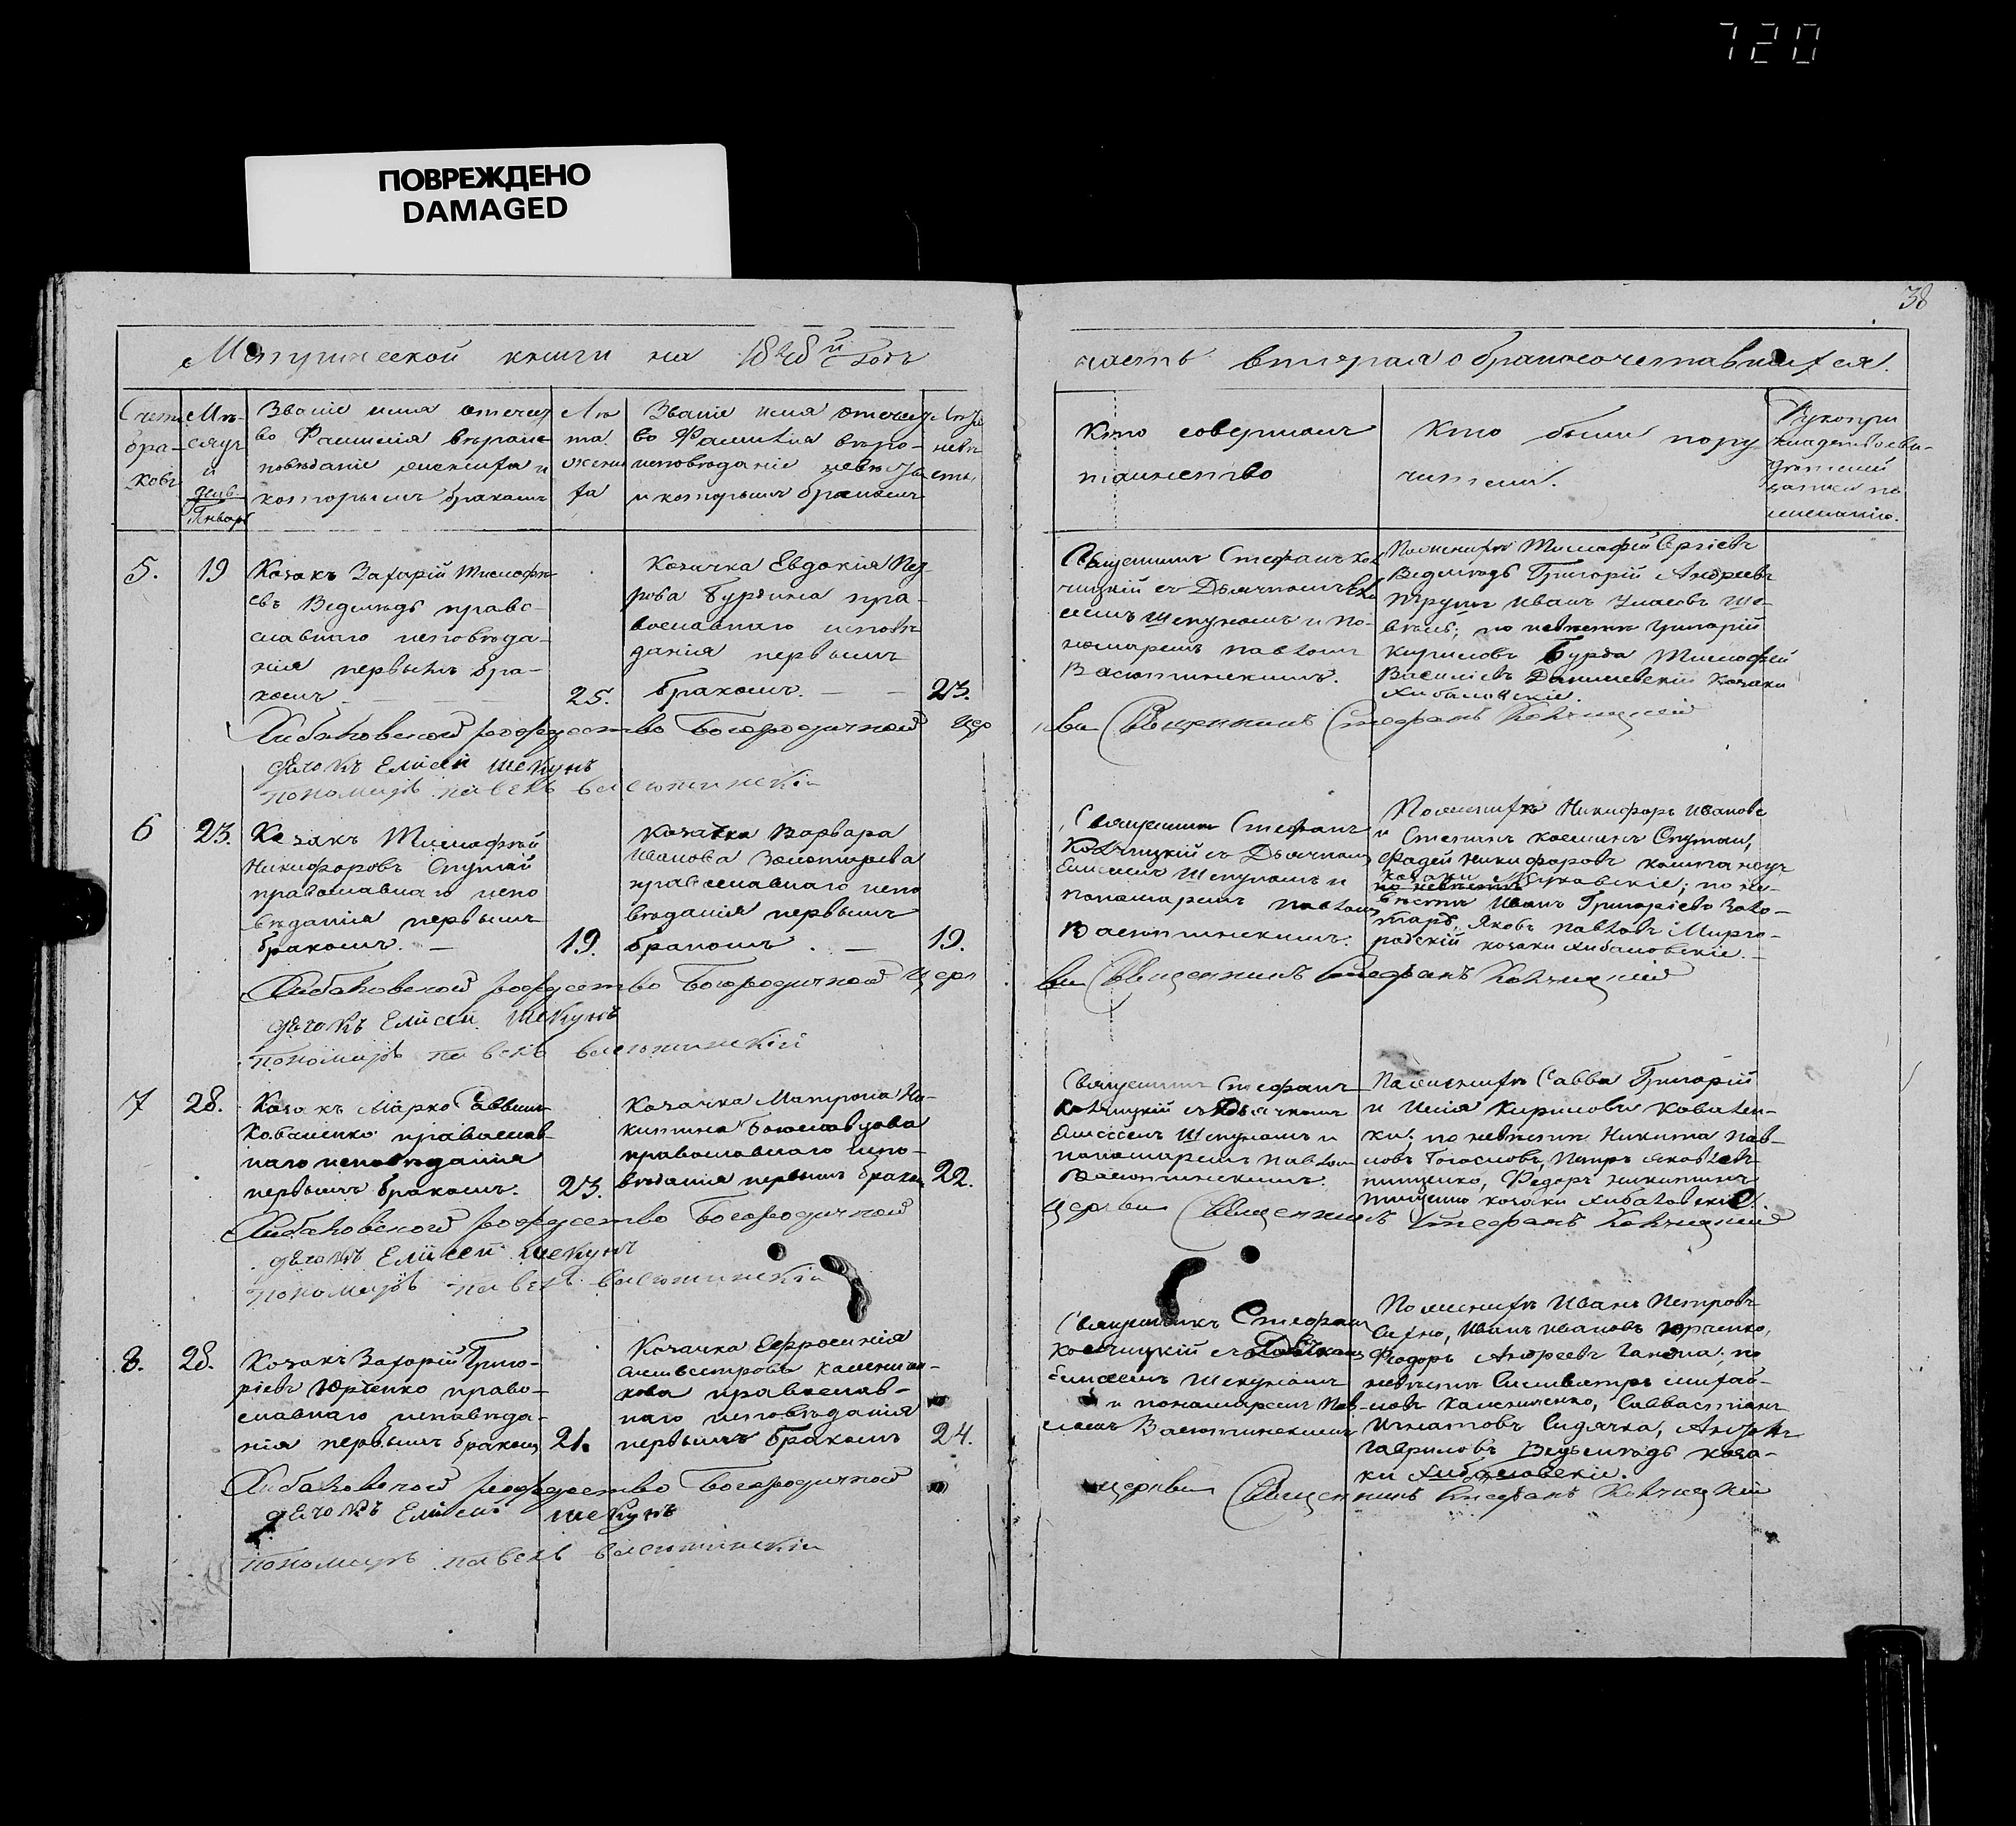 720
ПОВРЕЖДЕНО
DAMAGED
38
Метрической книги на 1848й годъ
часть вторая о бракосочетавшихся.
Счетъ
бра-
ковъ
Мѣ-
сяцъ
и
день.
Январь
Званіе имя отечест
во Фамилія вѣроис
повѣданіе жениха и
которымъ бракомъ
Лѣ
та
жени
ха
Званіе имя отечест
во Фамилія вѣро-
исповѣданіе невѣсты
и которымъ бракомъ
Лѣта
невѣ
сты
Кто совершалъ
таинство
Кто были пору
чители.
Рукопри
кладство сви-
дѣтелей
записи по
желанію.
5.
19
Козакъ Захарій Тимофѣ-
евъ Ведмѣдь право-
славнаго исповѣда-
нія первымъ бра-
комъ
25.
Козачка Евдокія Пет-
рова Бурдина пра-
вославнаго исповѣ-
данія первымъ
бракомъ.
23.
Священникъ Стефанъ
с Дьячкомъ
Шекуномъ и по-
номаремъ Павломъ
Васютинскимъ.
По женихѣ Тимофѣй Сргіевъ
Ведмѣдь Григорій Андреевъ
Иванъ Ше-
по невѣстѣ Григорій
Кириловъ Бурда Тимофѣй
Василіевъ Козаки
Хибаловскіе.
Хибаловской рождество Богородичной церк
ви Священникъ Стефанъ
дячокъ Елисей шекунъ
пономаръ павелъ васютинскій
6
23.
Козакъ Тимофѣй
Никифоровъ
православнаго испо
вѣданія первымъ
бракомъ.
19.
Козачка Варвара
Иванова Золотарева
православнаго испо
вѣданія первымъ
бракомъ.
19.
Священникъ Стефанъ
съ Дьячкомъ
Елисеемъ Шекуномъ и
пономаремъ Павломъ
Васютинскимъ.
По женихѣ Никифоръ Ивановъ
и Степанъ
Фадей Никифоровъ
козаки
по невѣстѣ
; по не-
вѣстѣ Иванъ Григоріевъ Золо-
таръ, Яковъ Павловъ Мирго-
родскій козаки Хибаловскіе.
Хибаловской рождество Богородичной церк
ви Священникъ Стефанъ
дячокъ Елисей шекунъ
пономаръ павелъ васютинскій
7
28.
Козакъ Марко Саввинъ
Коваленко православ-
наго исповѣданія
первымъ бракомъ.
23.
Козачка Матрона Ни-
китина
православнаго испо-
вѣданія первымъ бракомъ
22.
Священникъ Стефанъ
съ Дьячкомъ
Елисеемъ Шекуномъ и
пономаремъ Павломъ
Васютинскимъ.
По женихѣ Савва Григорій
и Илія Кириловы Ковален-
ки; по невѣстѣ Никита Пав-
ловъ Петръ
Федоръ Никитинъ
козаки Хибаловскіе.
Хибаловской рождество Богородичной
церкви Священникъ Стефанъ
дячокъ Елисей шекунъ
пономаръ павелъ васютинскій
8.
28.
Козакъ Захарій Григо-
ріевъ Юрченко право-
славнаго исповѣда-
нія первымъ бракомъ
21.
Козачка Ефросинія
Силвестрова
православ-
наго исповѣданія
первымъ бракомъ
24.
Священникъ Стефанъ
съ Дьячкомъ
Елисеемъ Шекуномъ
и пономаремъ Пав-
ломъ Васютинскимъ
По женихѣ Иванъ Петровъ
Иванъ Ивановъ Юрченко,
Феодоръ Андреевъ по
невѣстѣ
Савастіанъ
Игнатовъ
Гавриловъ Ведьмѣдь коза-
ки Хибаловскіе.
Хибаловской рождество Богородичной
церкви Священникъ Стефанъ
дячокъ Елисей шекунъ
пономаръ павелъ васютинскій